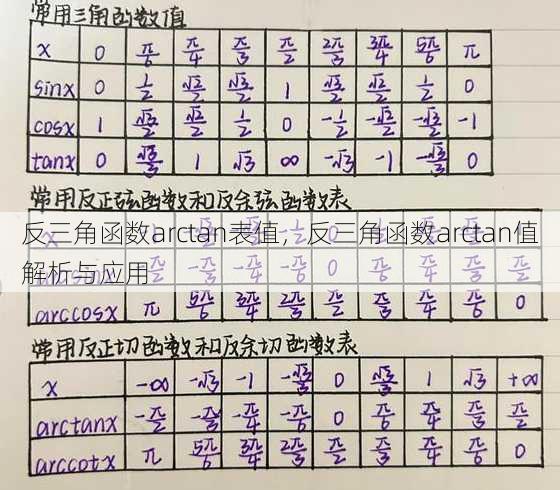 常用三角函数值
x 0 π/6 π/4 π/3 π/2 2π/3 3π/4 5π/6 π
sinx 0 1/2 √2/2 √3/2 1 √3/2 √2/2 1/2 0
cosx 1 √3/2 √2/2 1/2 0 -1/2 -√2/2 -√3/2 -1
tanx 0 √3/3 1 √3 ∞ -√3 -1 -√3/3 0
常用反正弦函数和反余弦函数表
反三角函数arctan表值，反三角函数arctan值
解析与应用
arccosx π 5π/6 3π/4 2π/3 π/2 π/3 π/4 π/6 0
常用反正切函数和反余切函数表
x -∞ -√3 -1 -√3/3 0 √3/3 1 √3 +∞
arctanx -π/2 -π/3 -π/4 -π/6 0 π/6 π/4 π/3 π/2
arccotx π 5π/6 3π/4 2π/3 π/2 π/3 π/4 π/6 0